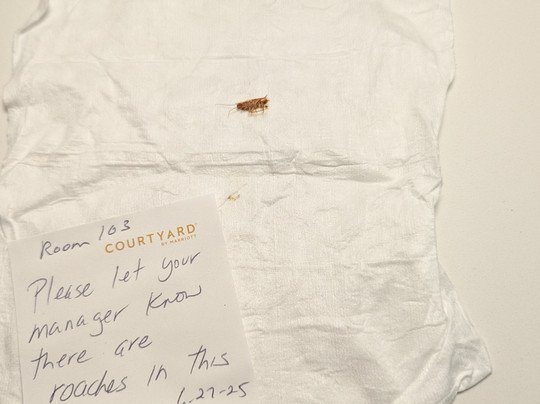 Room 103
COURTYARD
BY MARRIOTT
Please let your
manager know
there are
roaches in this
-27-25